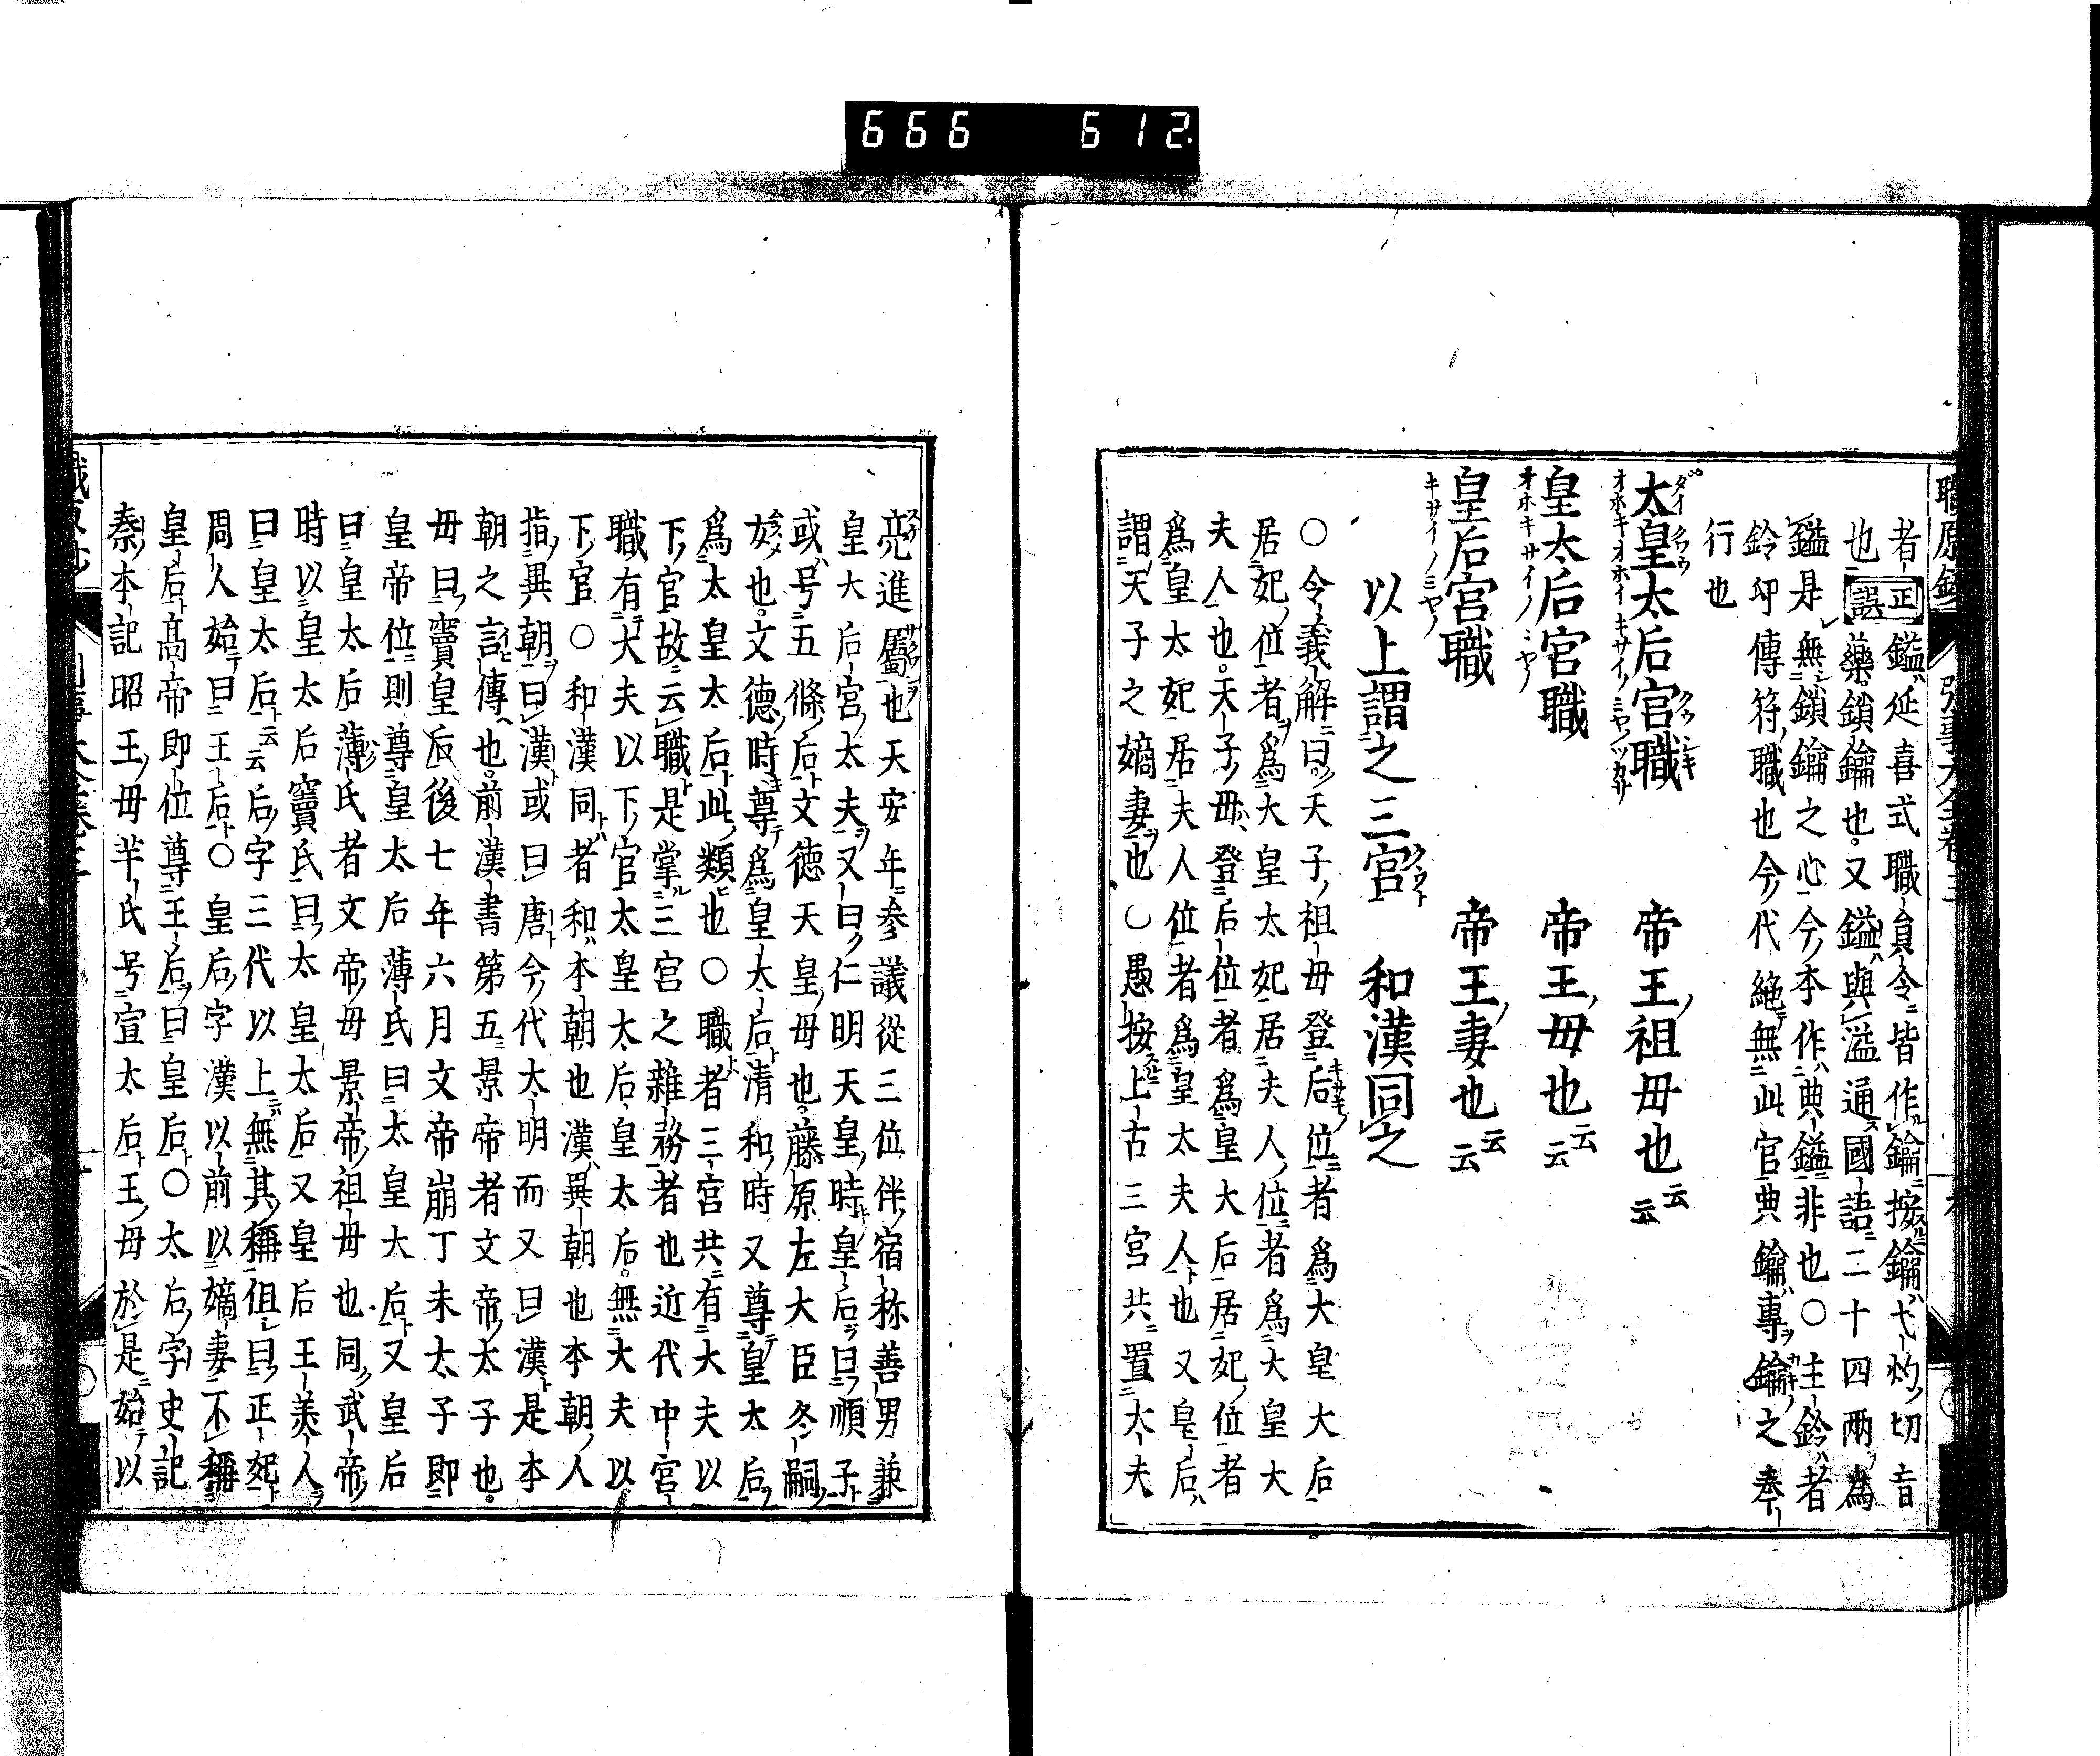 666 612
者也正誤鎰延喜式職員令皆作鑰按鑰弋灼切音
藥鎖鑰也又鎰與溢通國語二十四兩為
鎰是無鎖鑰之心今本作典鎰非也○主鈴者
鈴印傳符職也今代絶無此官典鑰專鑰之奉
行也
太皇太后宮職 帝王祖毋也云云
皇太后宮職 帝王毋也云云
皇后宮職 帝王妻也云云
以上謂之三宮 和漢同之
○令義解曰天子祖毋登后位者爲大皇大后
居妃位者爲大皇太妃居夫人位者爲大皇大
夫人也天子毋登后位者爲皇大后居妃位者
爲皇太妃居夫人位者爲皇太夫人也又皇后
謂天子之嫡妻也○愚按上古三宮共置大夫
亮進屬也天安年参議從三位伴宿称善男兼
皇大后宮太夫又曰仁明天皇時皇后曰順子
或号五條后文徳天皇毋也藤原左大臣冬嗣
女也文德時尊爲皇大后清和時又尊皇太后
爲太皇太后此類也○職者三宮共有大夫以
下官故云職是掌三宮之雜務者也近代中宮
職有大夫以下官太皇太后皇太后無大夫以
下官○和漢同者和本朝也漢異朝也本朝人
指異朝曰漢或曰唐今代大明而又曰漢是本
朝之言傳也前漢書第五景帝者文帝太子也
毋曰竇皇后後七年六月文帝崩丁未太子即
皇帝位則尊皇太后薄氏曰太皇大后又皇后
曰皇太后薄氏者文帝毋景帝祖毋也同武帝
時以皇太后竇氏曰太皇太后又皇后王美人
曰皇太后云云后字三代以上無其稱但曰正妃
周人始曰王后○皇后字漢以前以嫡妻不稱
皇后高帝即位尊王后曰皇后○太后字史記
秦本記昭王毋芉氏号宣太后王毋於是始以